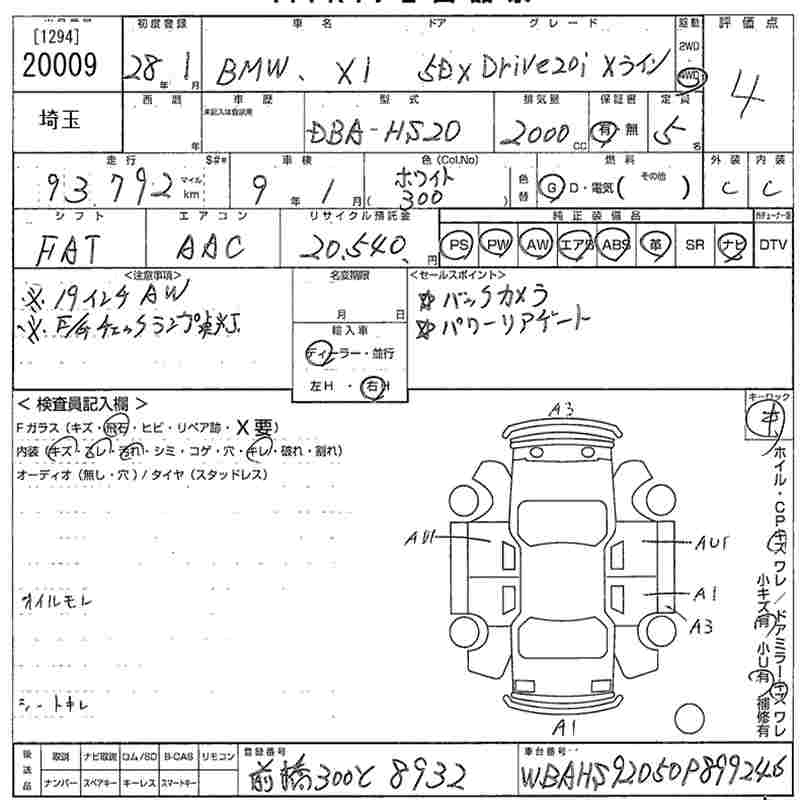 [1294]
20009
初度登録
車名
ドア
グレード
駆動
評価点
28年1月
BMW、X1
5D xDrive20i Xライン
2WD
4WD
4
埼玉
西暦
年
車歴
未記入は自家用
型式
排気量
保証書
定員
DBA-HS20
2000 CC
有・無
5名
走行
S#*
車検
色(Col,No)
燃料
外装
内装
93,792
マイル
km
9年1月
ホワイト
( 300 )
色替
G・D・電気(その他 )
C
C
シフト
エアコン
リサイクル預託金
純正装備品
FAT
AAC
20,540 円
PS
PW
AW
エアB
ABS
革
SR
ナビ
DTV
<注意事項>
名変期限
<セールスポイント>
※19インチAW
※E/Gチェックランプ点灯
月 日
輸入車
ディーラー・並行
左H・右H
☆バックカメラ
☆パワーリアゲート
<検査員記入欄>
キーロック
キ
Fガラス(キズ・飛石・ヒビ・リペア跡・X要)
内装(キズ・スレ・汚れ・シミ・コゲ・穴・キレ・破れ・割れ)
オーディオ(無し・穴)/タイヤ(スタッドレス)
オイルモレ
シートキレ
A3
AU1
AU1
A1
A3
A1
ホイル・CPキズワレ/ドアミラーキズワレ
小キズ有 小U有 補修有
後送品
取説
ナビ取説
ロム/SD
B-CAS
リモコン
ナンバー
スペアキー
キーレス
スマートキー
登録番号
前橋300と8932
車台番号
WBAHS92050P899246